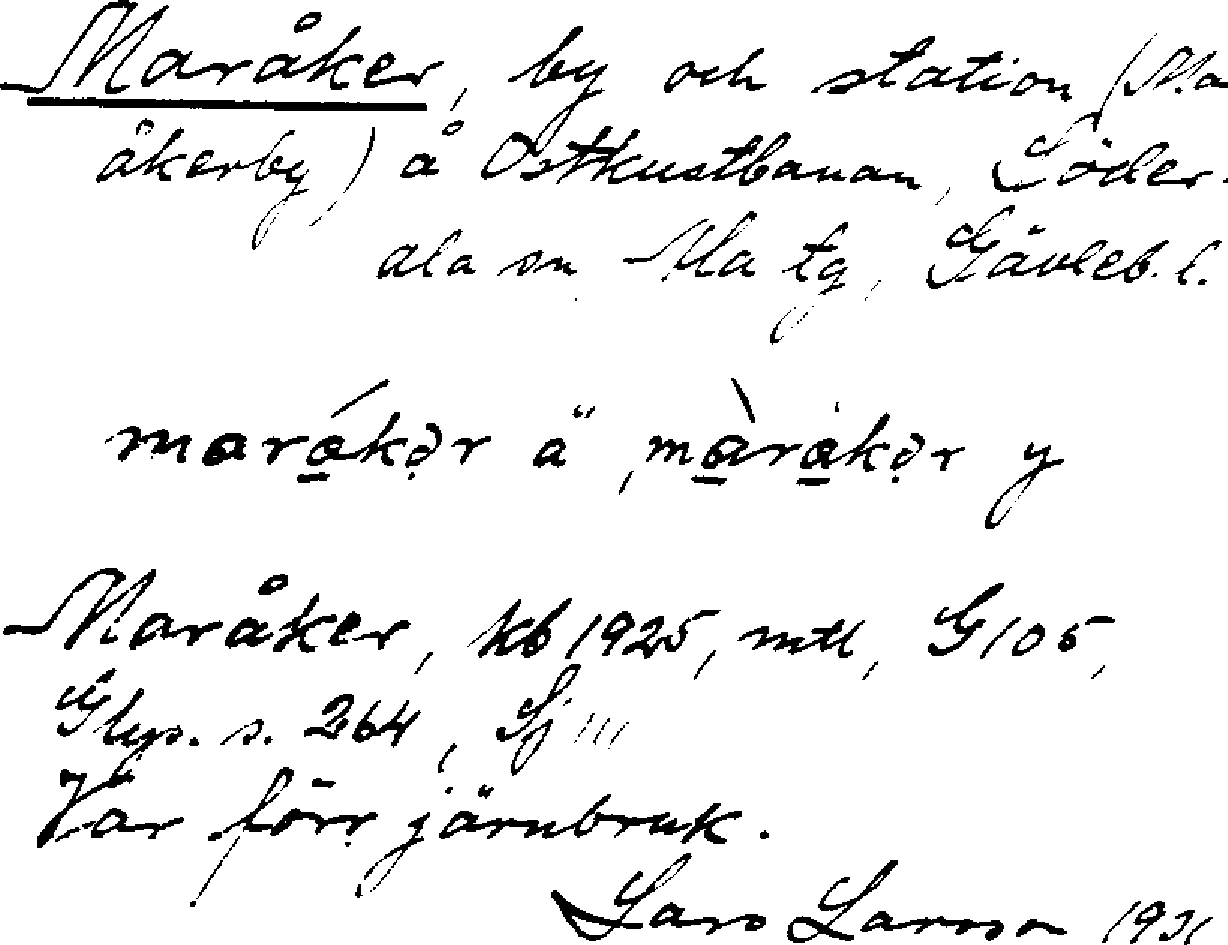 Maråker, by och station (Ma
åkerby) å Ostkustbanan, Söder-
ala sn Ala tg, Gävleb. l.
marákər ä, màrakər y
Maråker, kb 1925, mtl, G 105,
Glys. s. 264, Sj
Var förr järnbruk.
Lars Larsson 1931